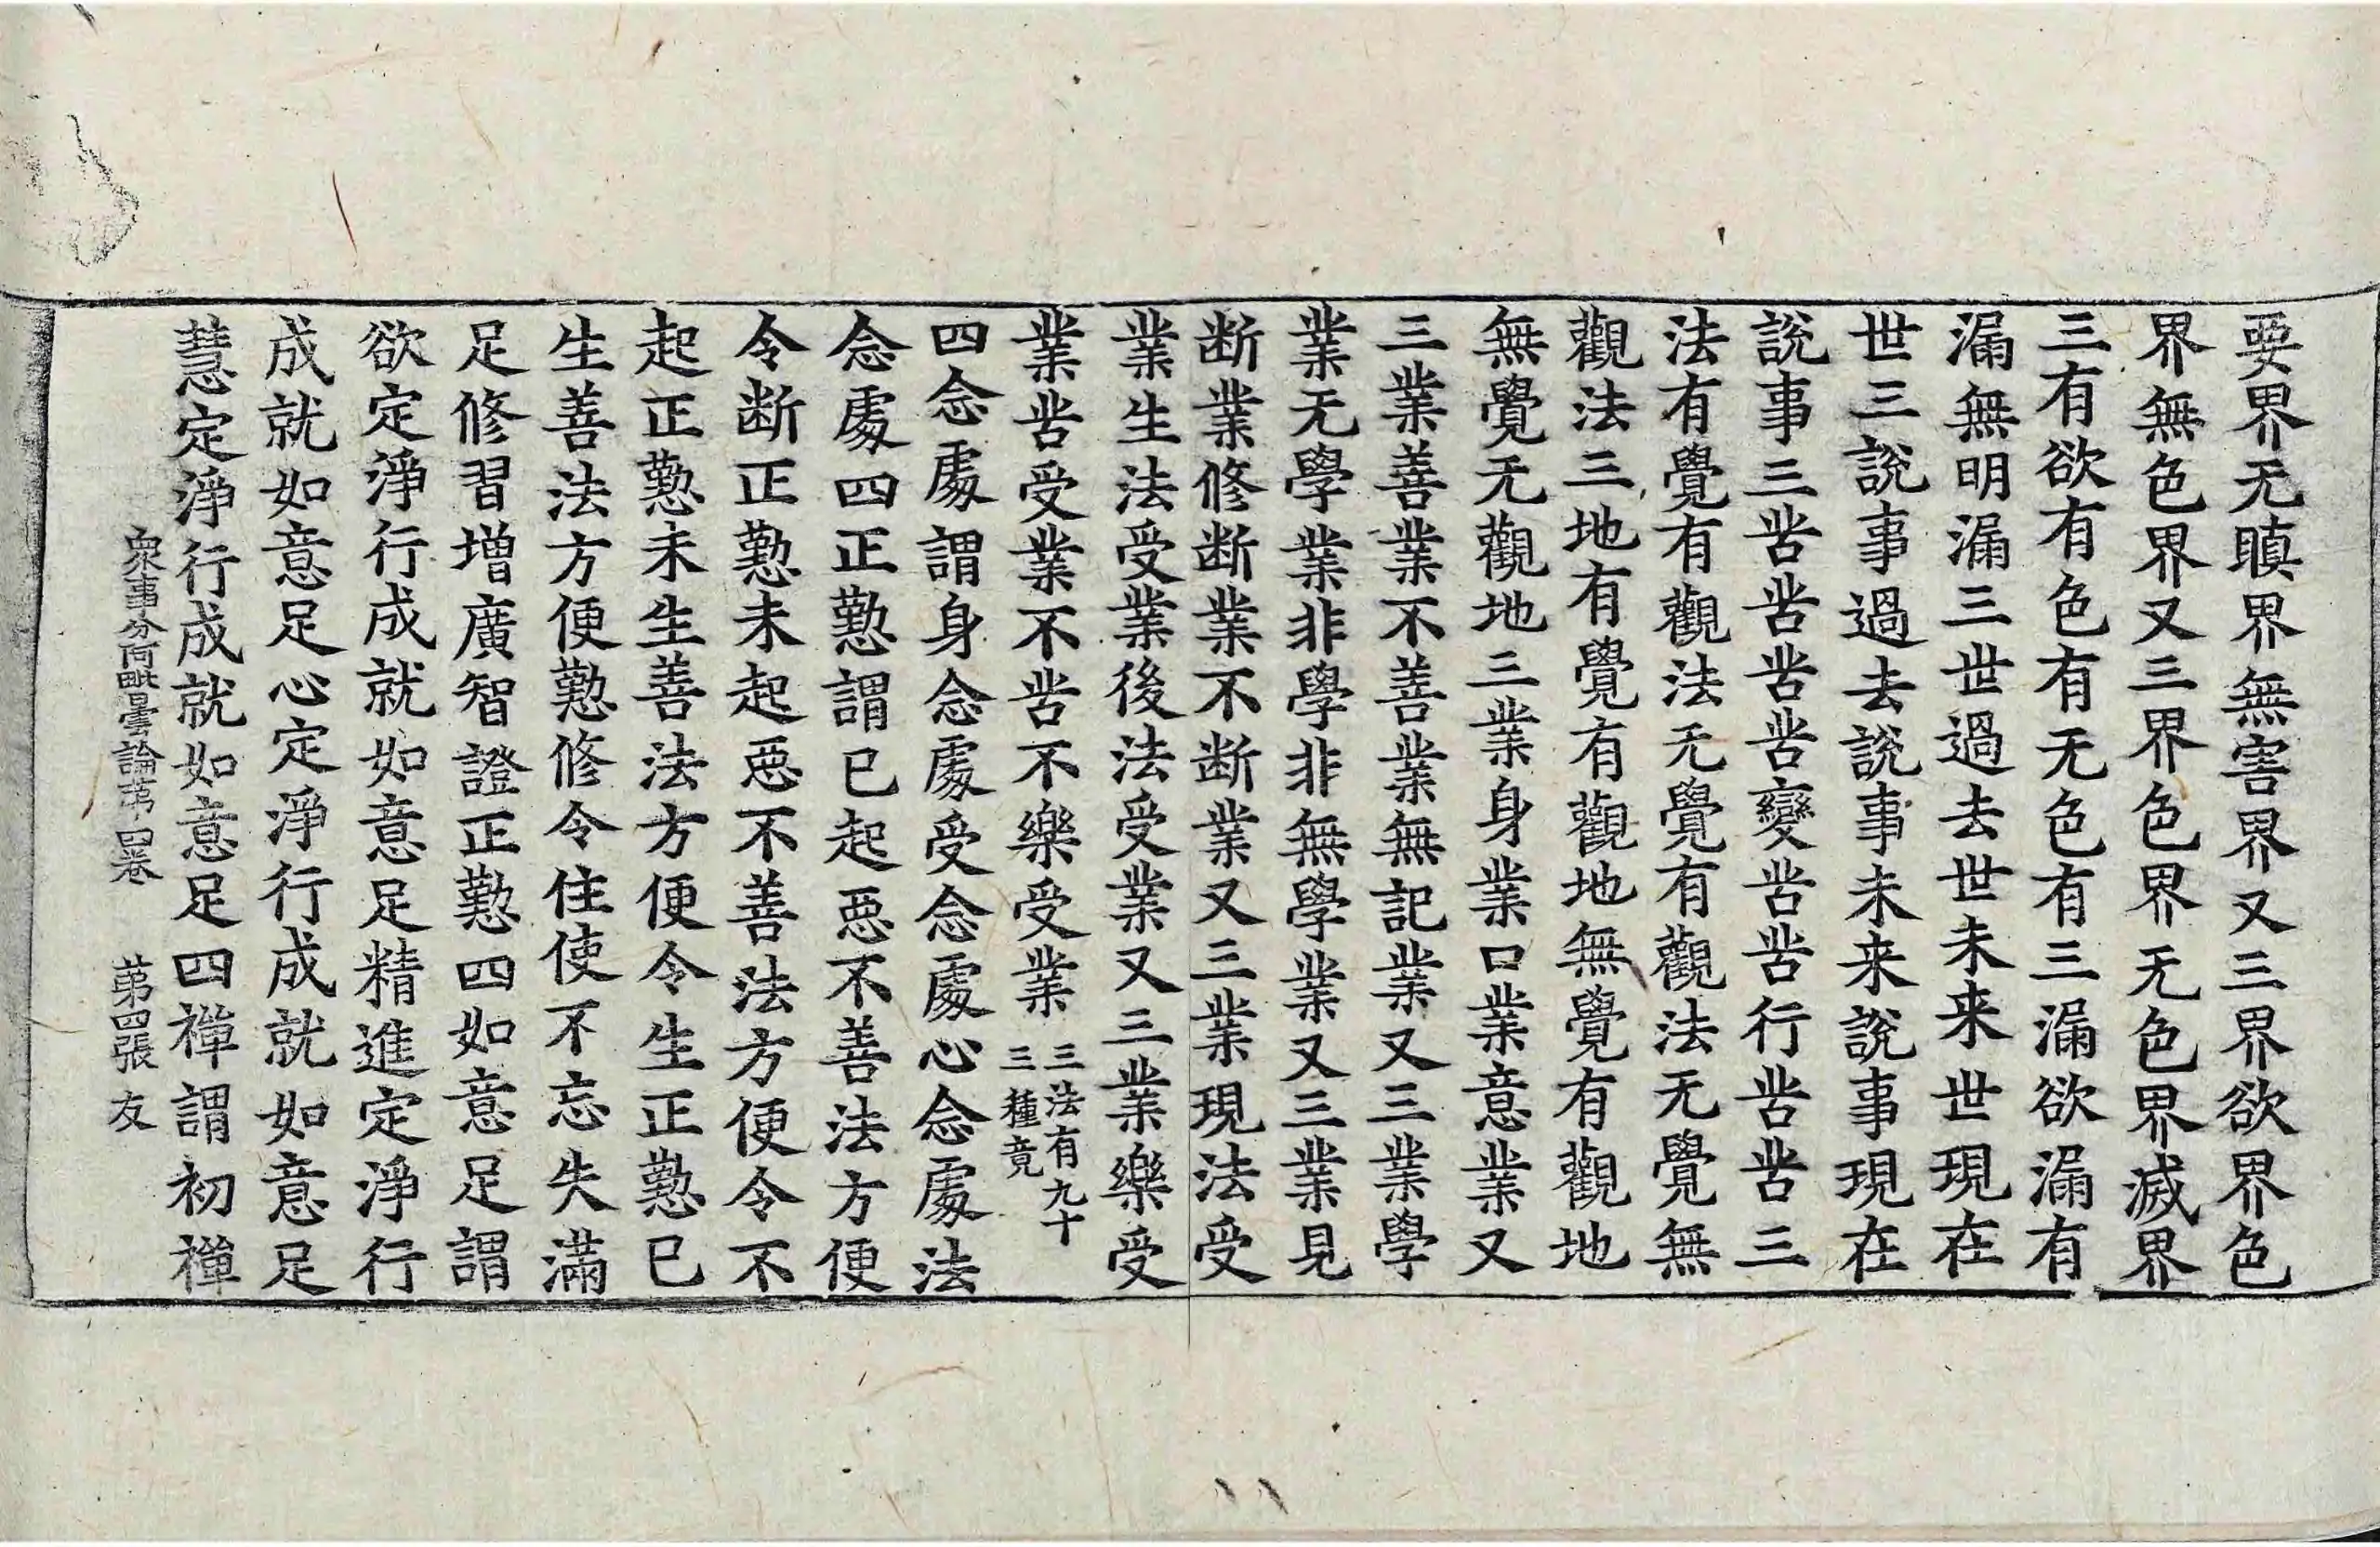 要界无瞋界無害界又三界欲界色
界無色界又三界色界无色界滅界
三有欲有色有无色有三漏欲漏有
漏無明漏三世過去世未来世現在
世三説事過去説事未来説事現在
説事三苦苦苦苦變苦苦行苦苦三
法有覺有觀法无覺有觀法无覺無
觀法三地有覺有觀地無覺有觀地
無覺无觀地三業身業口業意業又
三業善業不善業無記業又三業學
業无學業非學非無學業又三業見
断業修断業不断業又三業現法受
業生法受業後法受業又三業樂受
業苦受業不苦不樂受業
三法有九十
三種竟
四念處謂身念處受念處心念處法
念處四正懃謂已起惡不善法方便
令断正懃未起惡不善法方便令不
起正懃未生善法方便令生正懃已
生善法方便懃修令住使不忘失滿
足修習増廣智證正懃四如意足謂
欲定淨行成就如意足精進定淨行
成就如意足心定淨行成就如意足
慧定淨行成就如意足四禪謂初禪
衆事分阿毗曇論苐四卷 苐四張 友